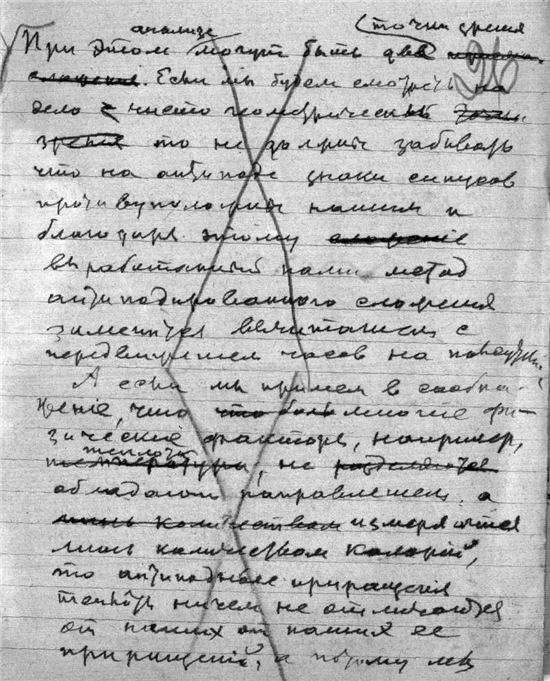 анализе (точки зрения
При этом могут быть две
сложения. Если мы будем смотреть на
дело с чисто геометрической точки
зрения то не должны забывать
что на антиподе знаки синусов
противуположны нашим и
благодаря этому сложение
выработанный нами метод
антиподированного сложения
заменится вычитанием с
передвижением часов на
А если мы примем в сообра-
жение, что что боль многие фи-
зические факторы, например,
теплота
температура, не разделяются
обладают направлением, а
лишь количеством измеряются
лишь количеством калорий,
то антиподные приращения
теплоты ничем не отличаются
от наших от наших ее
приращений, а потому мы